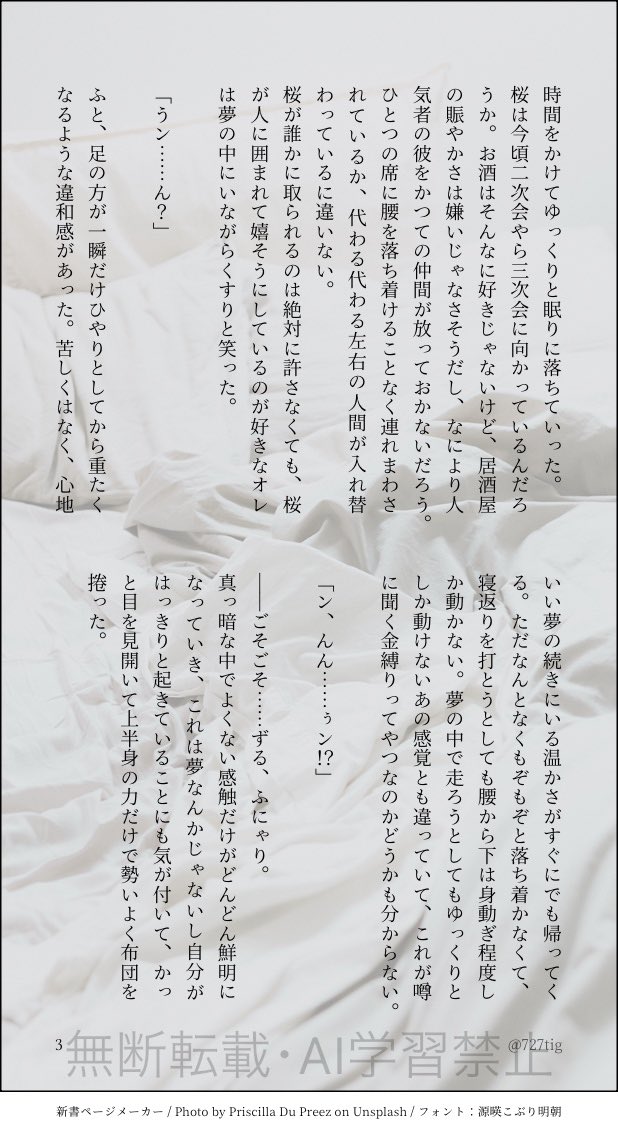 時間をかけてゆっくりと眠りに落ちていった。
桜は今頃二次会やら三次会に向かっているんだろ
うか。お酒はそんなに好きじゃないけど、居酒屋
の賑やかさは嫌いじゃなさそうだし、なにより人
気者の彼をかつての仲間が放っておかないだろう。
ひとつの席に腰を落ち着けることなく連れまわさ
れているか、代わる代わる左右の人間が入れ替
わっているに違いない。
桜が誰かに取られるのは絶対に許さなくても、桜
が人に囲まれて嬉そうにしているのが好きなオレ
は夢の中にいながらくすりと笑った。
「うン……ん?」
ふと、足の方が一瞬だけひやりとしてから重たく
なるような違和感があった。苦しくはなく、心地
いい夢の続きにいる温かさがすぐにでも帰ってく
る。ただなんとなくもぞもぞと落ち着かなくて、
寝返りを打とうとしても腰から下は身動ぎ程度し
か動かない。夢の中で走ろうとしてもゆっくりと
しか動けないあの感覚とも違っていて、これが噂
に聞く金縛りってやつなのかどうかも分からない。
「ン、んん……ぅン!?」
──ごそごそ……ずる、ふにゃり。
真っ暗な中でよくない感触だけがどんどん鮮明に
なっていき、これは夢なんかじゃないし自分が
はっきりと起きていることにも気が付いて、かっ
と目を見開いて上半身の力だけで勢いよく布団を
捲った。
3
無断転載・AI学習禁止
@727tig
新書ページメーカー / Photo by Priscilla Du Preez on Unsplash / フォント：源暎こぶり明朝